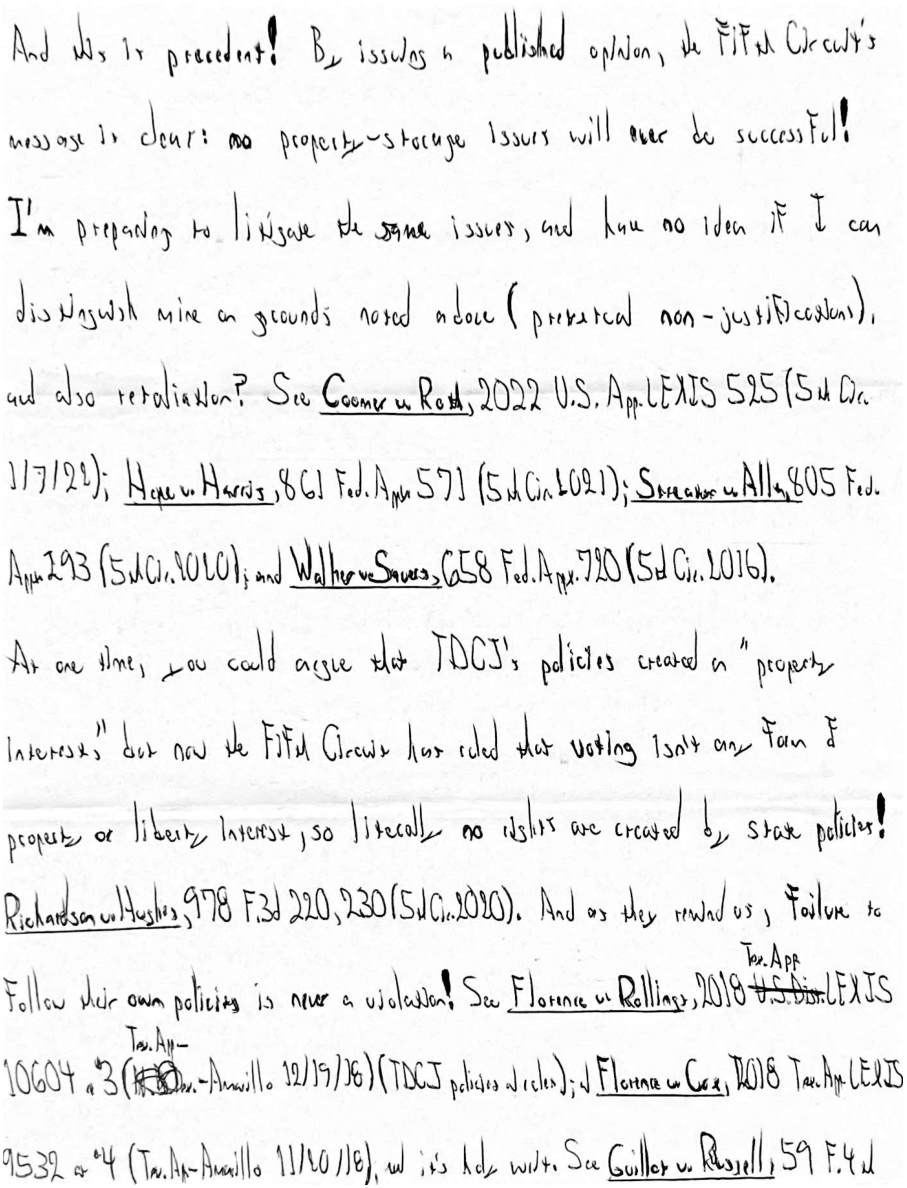 And this is precedent! By issuing a published opinion, the Fifth Circuit's
message is clear: no property-storage issues will ever be successful!
I'm preparing to litigate the same issues, and have no idea if I can
distinguish mine on grounds noted above (pretextual non-justifications),
and also retaliation? See Coomer v. Roth, 2022 U.S. App. LEXIS 525 (5th Cir.
1/7/22); Hope v. Harris, 861 Fed. Appx 571 (5th Cir. 2021); Streater v. Allen, 805 Fed.
Appx 293 (5th Cir. 2020); and Walker v. Savers, 658 Fed. Appx. 720 (5th Cir. 2016).
At one time, you could argue that TDCJ's policies created a "property
interest," but now the Fifth Circuit has ruled that voting isn't any form of
property or liberty interest, so literally no rights are created by state policies!
Richardson v. Hughs, 978 F.3d 220, 230 (5th Cir. 2020). And as they remind us, failure to
follow their own policies is never a violation! See Florence v. Rollings, 2018 Tex. App. LEXIS
10604 at *3 (Tex. App-Amarillo 12/19/18) (TDCJ policies and rules); and Florence v. Cox, 2018 Tex. App. LEXIS
9532 at *4 (Tex. App-Amarillo 11/20/18), and it's See Guillot v. Russell, 59 F.4th